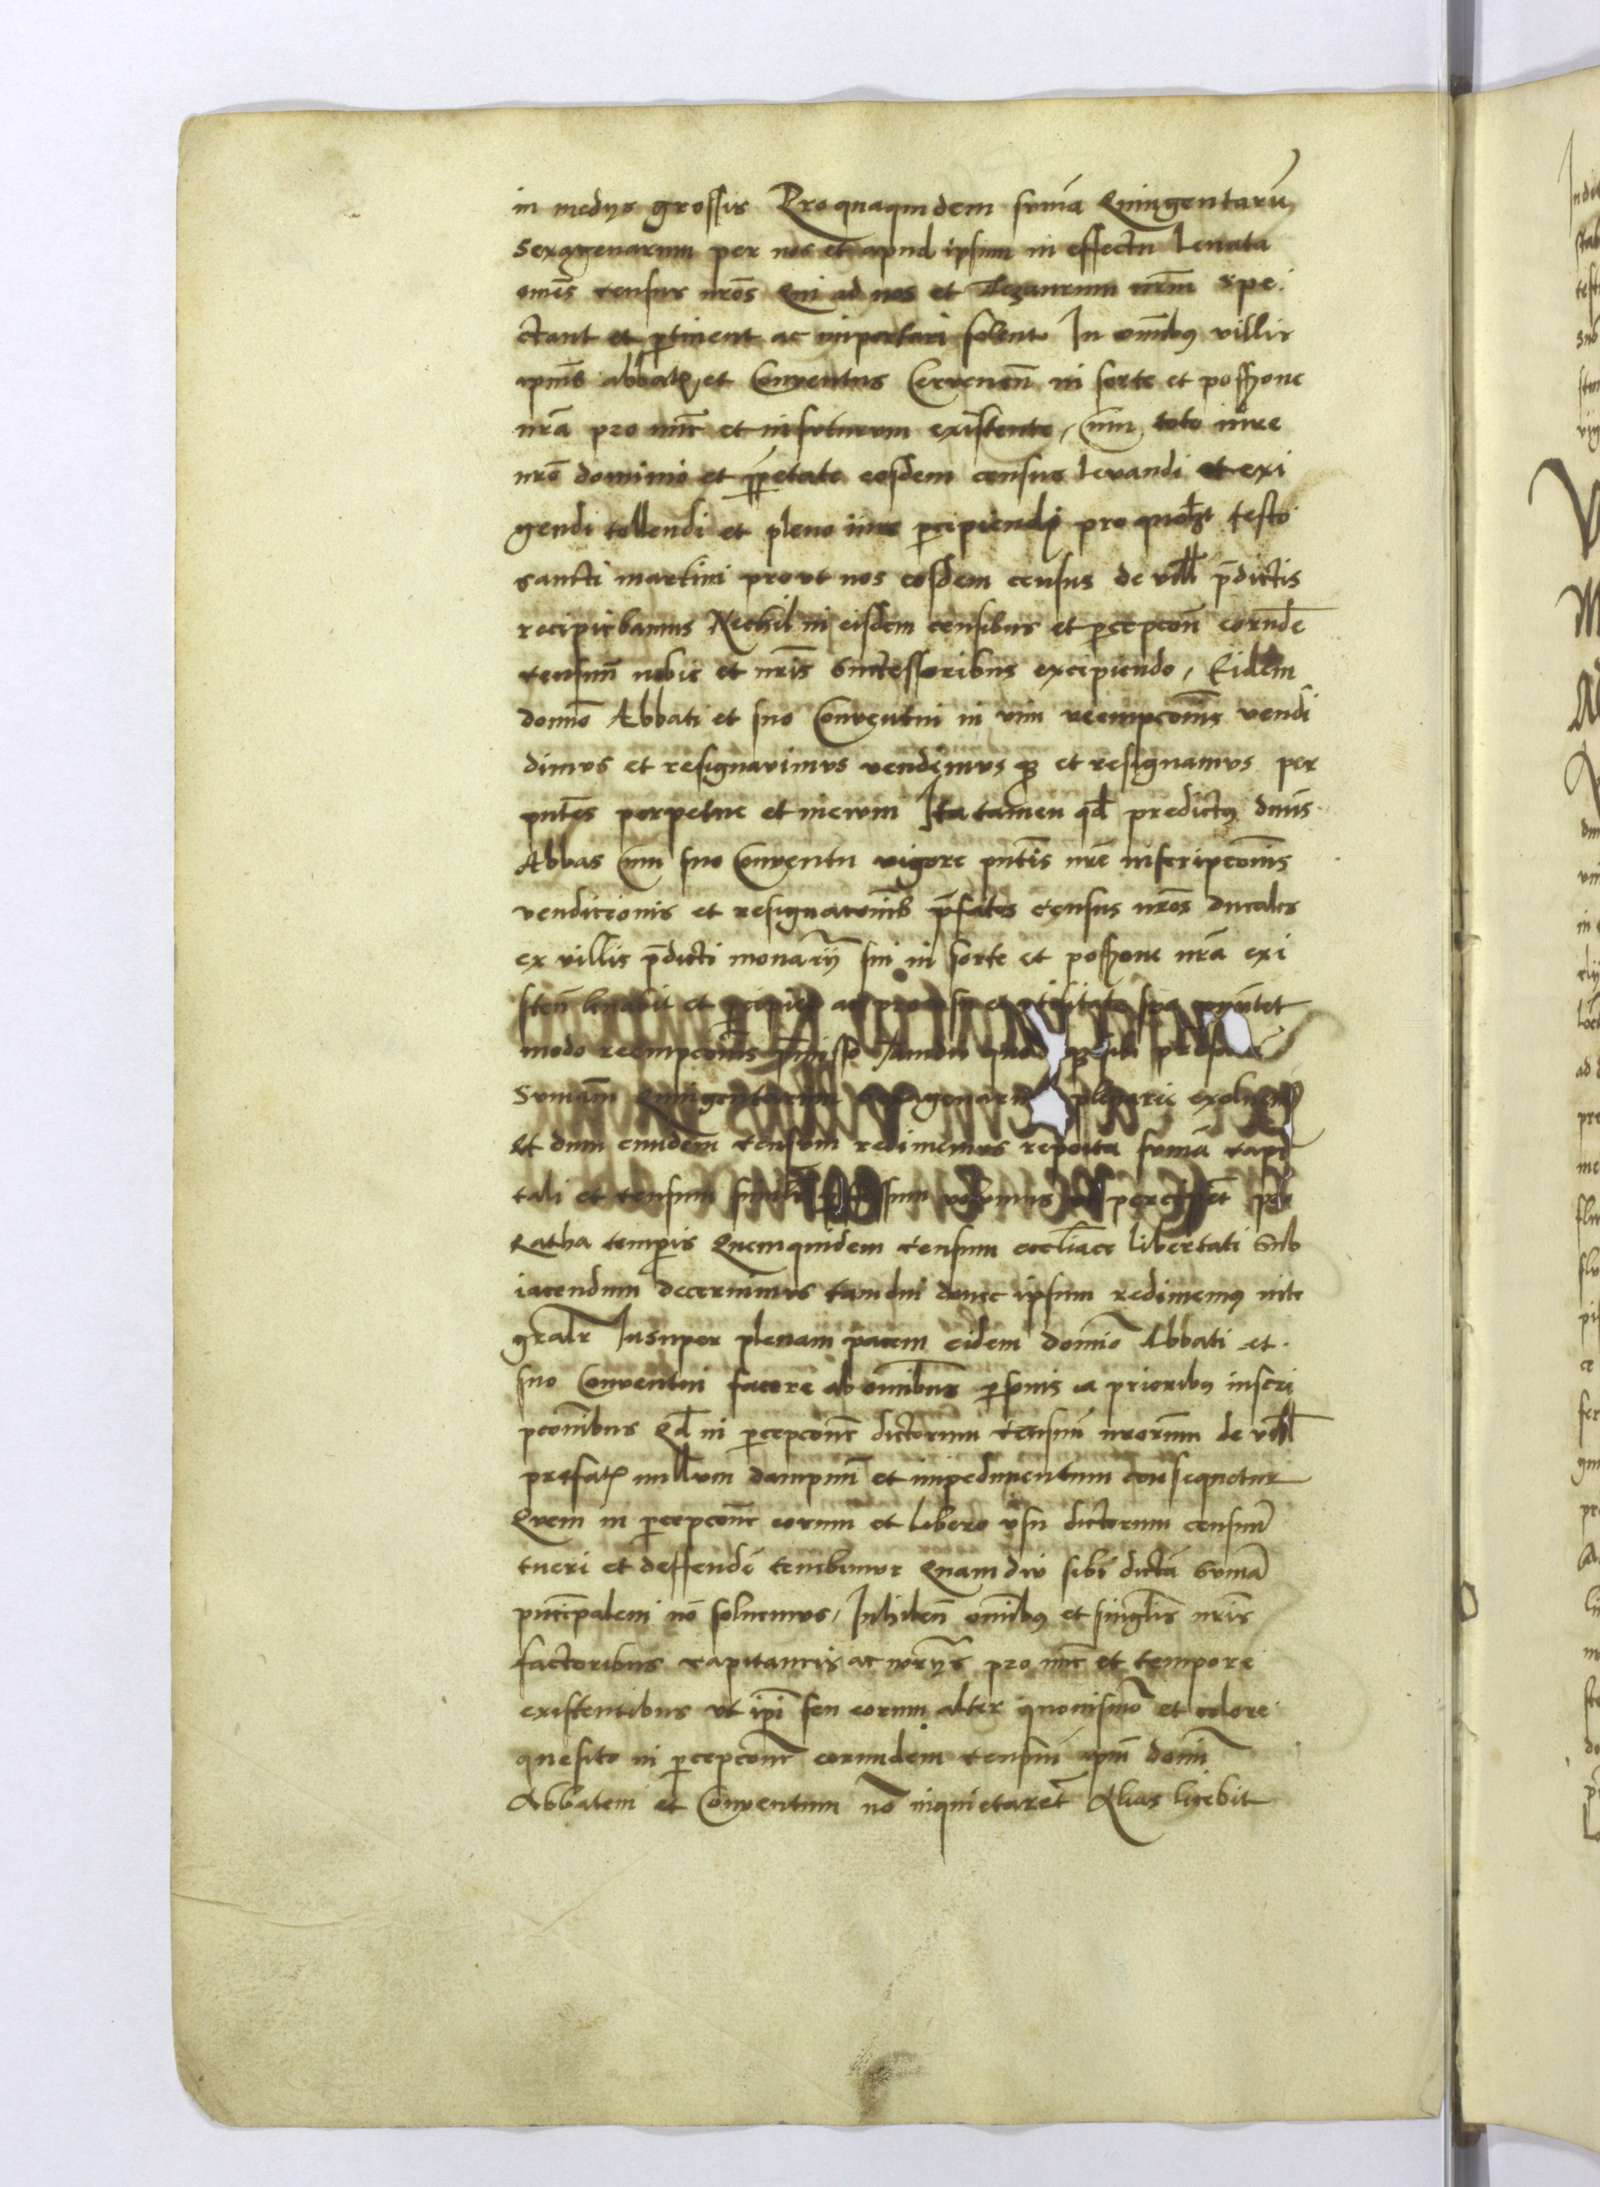 in medÿs grossis Pro quaquidem sum̄a Quingentarum
Sexagenarum per nos et apud ipsum in effectu leuata
om̄es census nr̄os Qui ad nos et Tezaurum nr̄um spe
ctant et pertinent ac importari solent In om̄ibus villis
abbatis et Conuentus in sorte et poss̄ione
nr̄a pro nu̅c et infuturum existente, Cum toto iure
nr̄o dominio et prop̄etate eosdem census leuandi et exi
gendi tollendi et pleno iure percipiendi pro quol̄t festo
sancti martini provt nos eosdem census de vill̄ p̄dictis
recipiebamus Nichil in eisdem censibus et percepcōn eorund̄e
censuum nobis et nr̄is Successoribus excipiendo, Eidem
domīo Abbati et suo Conuentui in vim reempcōnis vendi
dimus et resignauimus vendimusque et resignamus per
pn̄tes perpetue et in ewm Ita tamen qd̄ predictus dn̄us
Abbas Cum suo Conuentu vigore pn̄tis nr̄e inscripcōnis
vendicionis et resignacōnis p̄fatos census nr̄os ducales
ex villis p̄dicti monar̄ÿ sui in sorte et poss̄ione nr̄a exi
sten̄ leuabit et percipiet ac pro usu et vtilitate sua
modo reempcōnis p̄misso Tamdiu quo
Sum̄am Quingentarum Sexagenarum plenarie
Et dum eundem censum redimemus reposita sum̄a capi
tali et censum volumus percipiet pro
Ratha temporis Quemquidem censum eccl̄iace libertati Sub
iacendum decernimus tamdiu donec ipsum redimemus inte
gralr̄ Insuper plenam pacem eidem domīo Abbati et
suo Conuentui facere ab om̄ibus personis ca prioribus inscri
pcōnibus Qd̄ in percepcōne dictorum censuum nr̄orum de vill̄
prefatis nullum dampnu̅ et impedimentum consequetur
Quem in percepcōne eorum et libero vsu dictorum censuum
tueri et deffender̄ tenebimur Quamdiu sibi dictā Sum̄ā
principalem nō soluemus, Inhiben̄ om̄ibus et singulis nr̄is
factoribus capitaneis ac pro nu̅c et tempore
existentibus vt ip̄i seu eorum alter quouismō et colore
quesito in percepcōne eorumdem censuum ipsum domīu
Abbatem et Conuentum nō inquietaret Alias licebit